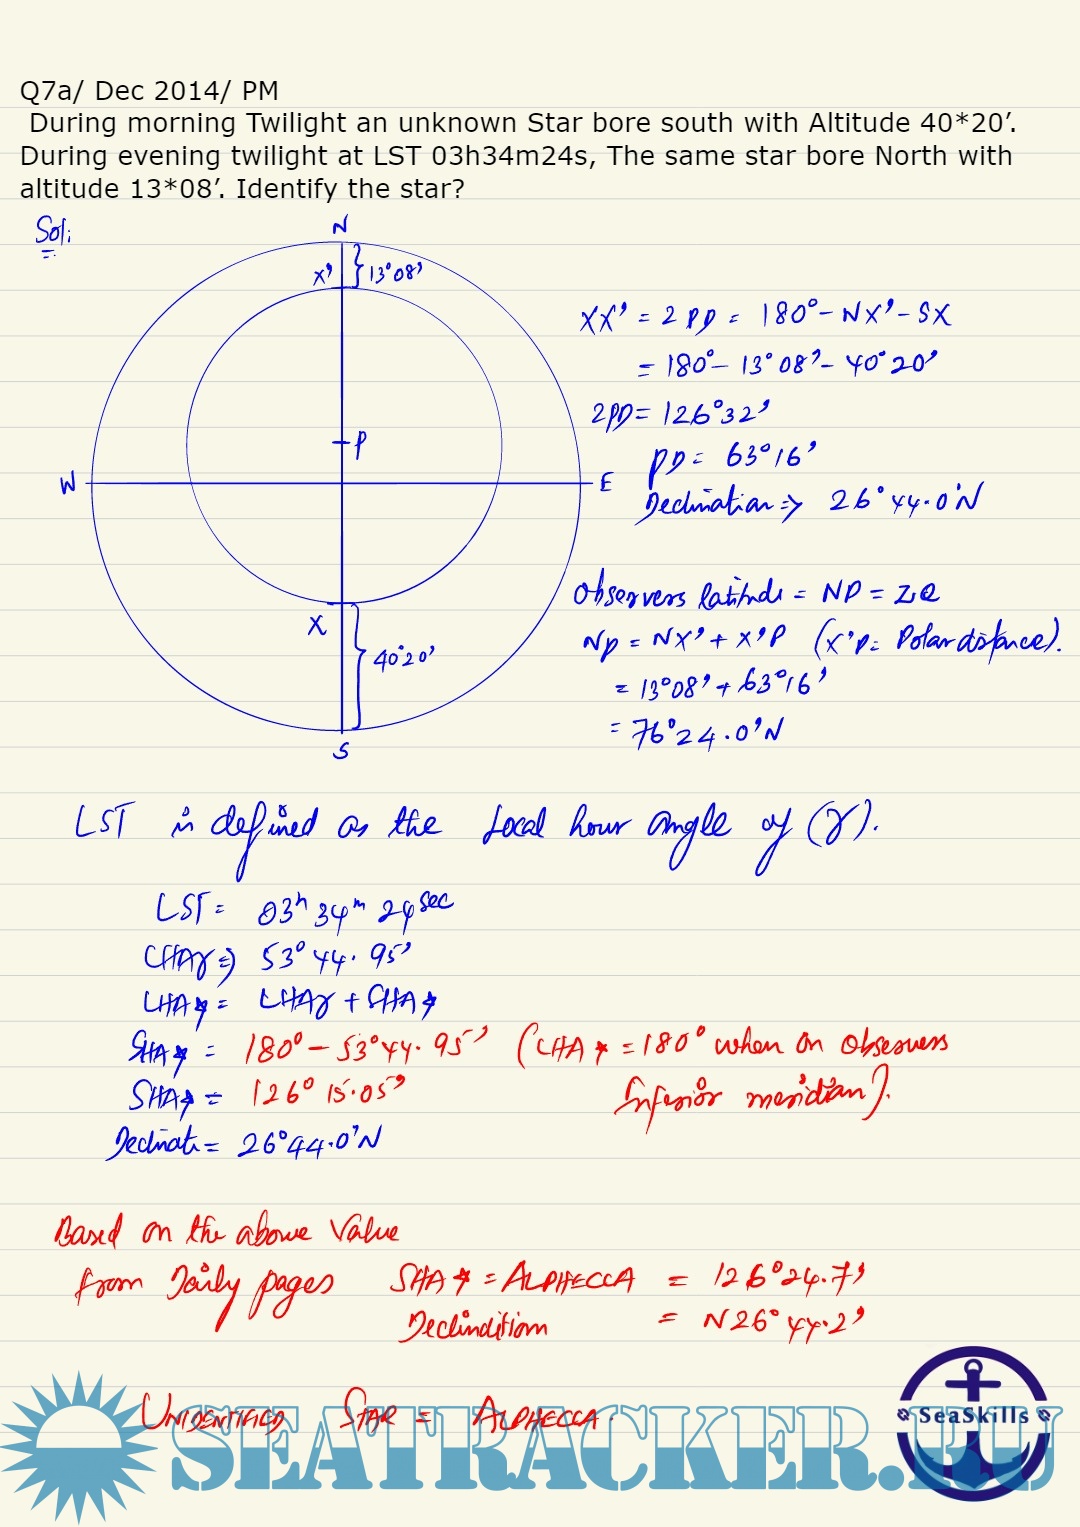 Q7a/ Dec 2014/ PM
During morning Twilight an unknown Star bore south with Altitude 40*20’.
During evening twilight at LST 03h34m24s, The same star bore North with
altitude 13*08’. Identify the star?
Sol:
N
X' } 13°08'
XX' = 2 PD = 180° - NX' - SX
= 180° - 13°08' - 40°20'
2PD = 126°32'
P
PD = 63°16'
W
E
Declination => 26°44.0'N
Observers latitude = NP = ZQ
X
NP = NX' + X'P (X'P = Polar distance).
40°20'
= 13°08' + 63°16'
= 76°24.0'N
S
LST is defined as the Local hour angle of (γ).
LST = 03h 34m 24sec
LHAγ => 53°44.95'
LHA★ = LHAγ + SHA★
SHA★ = 180° - 53°44.95' (LHA★ = 180° when on observers
SHA★ = 126°15.05' Inferior meridian).
Declinat = 26°44.0'N
Based on the above value
from Daily pages SHA★ = ALPHECCA = 126°24.7'
Declindition = N26°44.2'
UNIDENTIFIED STAR = ALPHECCA.
SeaSkills
SEATRACKER.RU